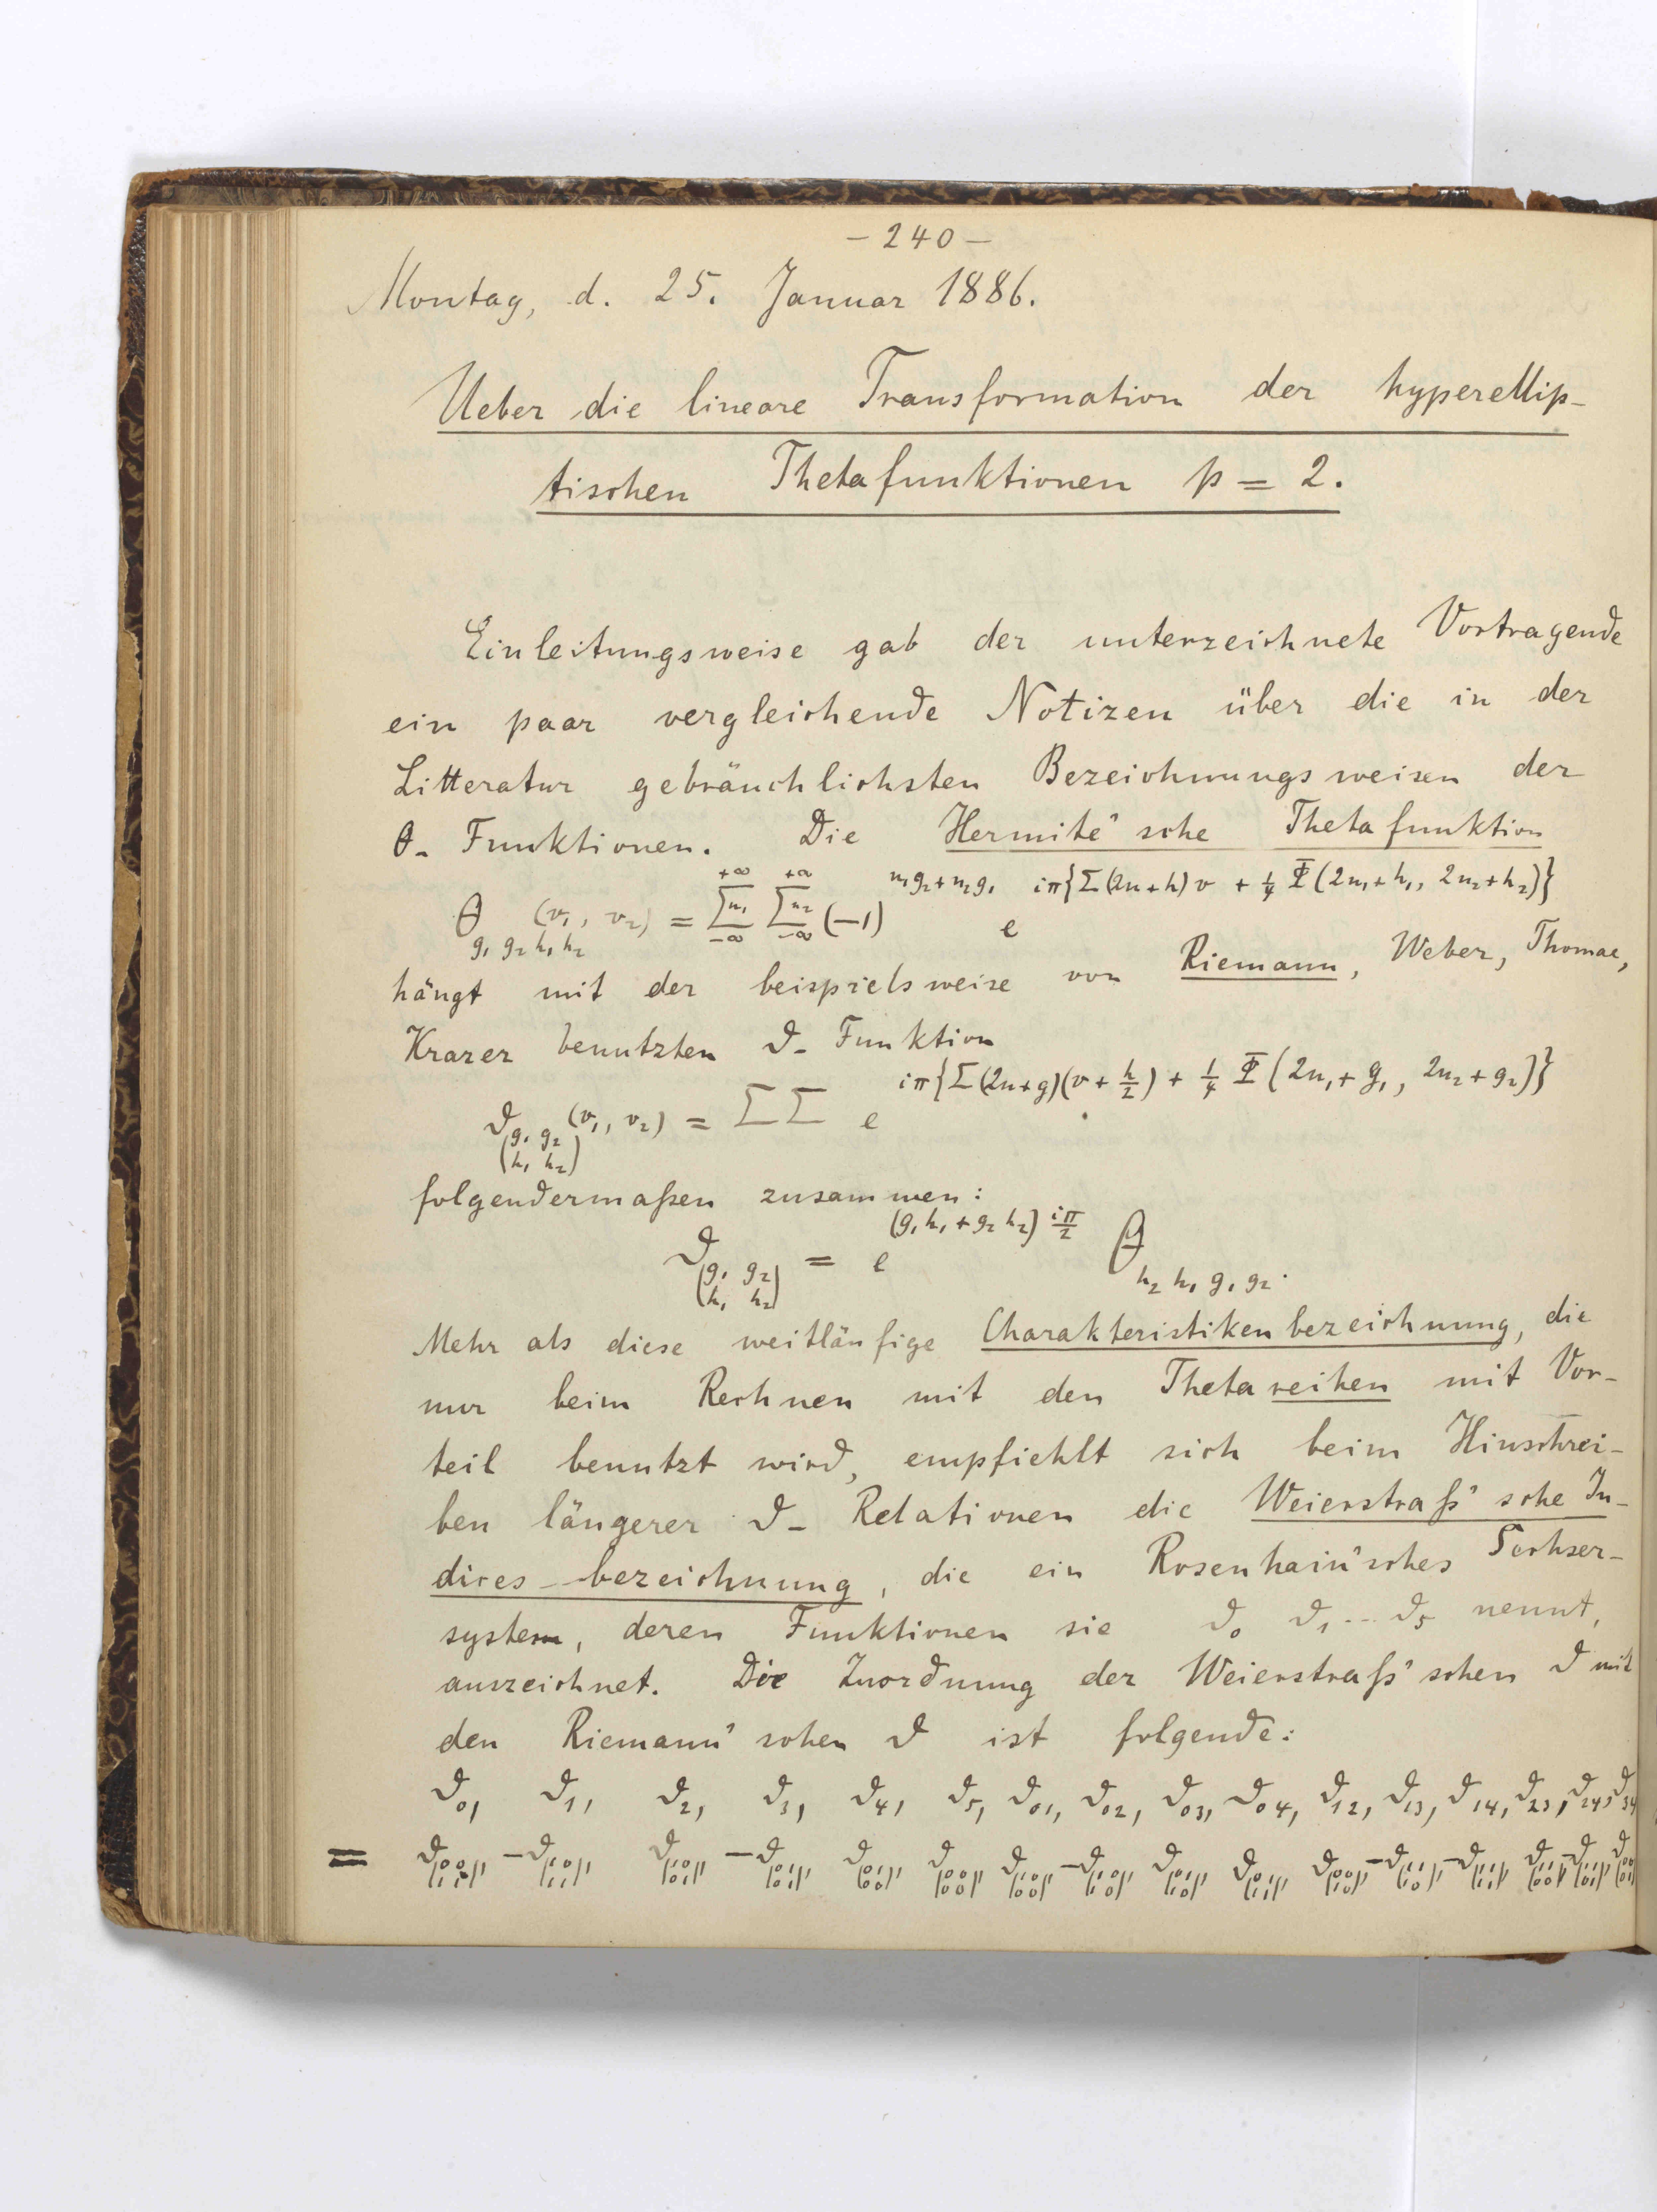 – 240 –
Montag, d. 25. Januar 1886.
Ueber die lineare Transformation der hyperellip-
tischen Thetafunktionen p = 2.
Einleitungsweise gab der unterzeichnete Vortragende
ein paar vergleichende Notizen über die in der
Litteratur gebräuchlichsten Bezeichnungsweisen der
θ- Funktionen. Die Hermite'sche Thetafunktion
θ_{g₁ g₂ h₁ h₂} (v₁, v₂) = Σn₁_{-∞}^{+∞} Σn₂_{-∞}^{+∞} (-1)^{n₁g₂+n₂g₁} e^{iπ{Σ(2n+h)v + ¼ Φ(2n₁+h₁, 2n₂+h₂)}}
hängt mit der beispielsweise von Riemann, Weber, Thomae,
Krazer benutzten ϑ- Funktion
ϑ_{(g₁ g₂ / h₁ h₂)} (v₁, v₂) = ΣΣ e^{iπ{Σ(2n+g)(v+h/2) + ¼ Φ(2n₁+g₁, 2n₂+g₂)}}
folgendermaßen zusammen:
ϑ_{(g₁ g₂ / h₁ h₂)} = e^{(g₁h₁+g₂h₂) iπ/2} θ_{h₂ h₁ g₁ g₂}.
Mehr als diese weitläufige Charakteristikenbezeichnung, die
nur beim Rechnen mit den Thetareihen mit Vor-
teil benutzt wird, empfiehlt sich beim Hinschrei-
ben längerer ϑ- Relationen die Weierstraß'sche In-
dices-bezeichnung, die ein Rosenhain'sches Sechser-
system, deren Funktionen sie ϑ₀ ϑ₁ ... ϑ₅ nennt,
auszeichnet. Die Zuordnung der Weierstraß'schen ϑ mit
den Riemann'schen ϑ ist folgende:
ϑ₀, ϑ₁, ϑ₂, ϑ₃, ϑ₄, ϑ₅, ϑ₀₁, ϑ₀₂, ϑ₀₃, ϑ₀₄, ϑ₁₂, ϑ₁₃, ϑ₁₄, ϑ₂₃, ϑ₂₄, ϑ₃₄
= ϑ